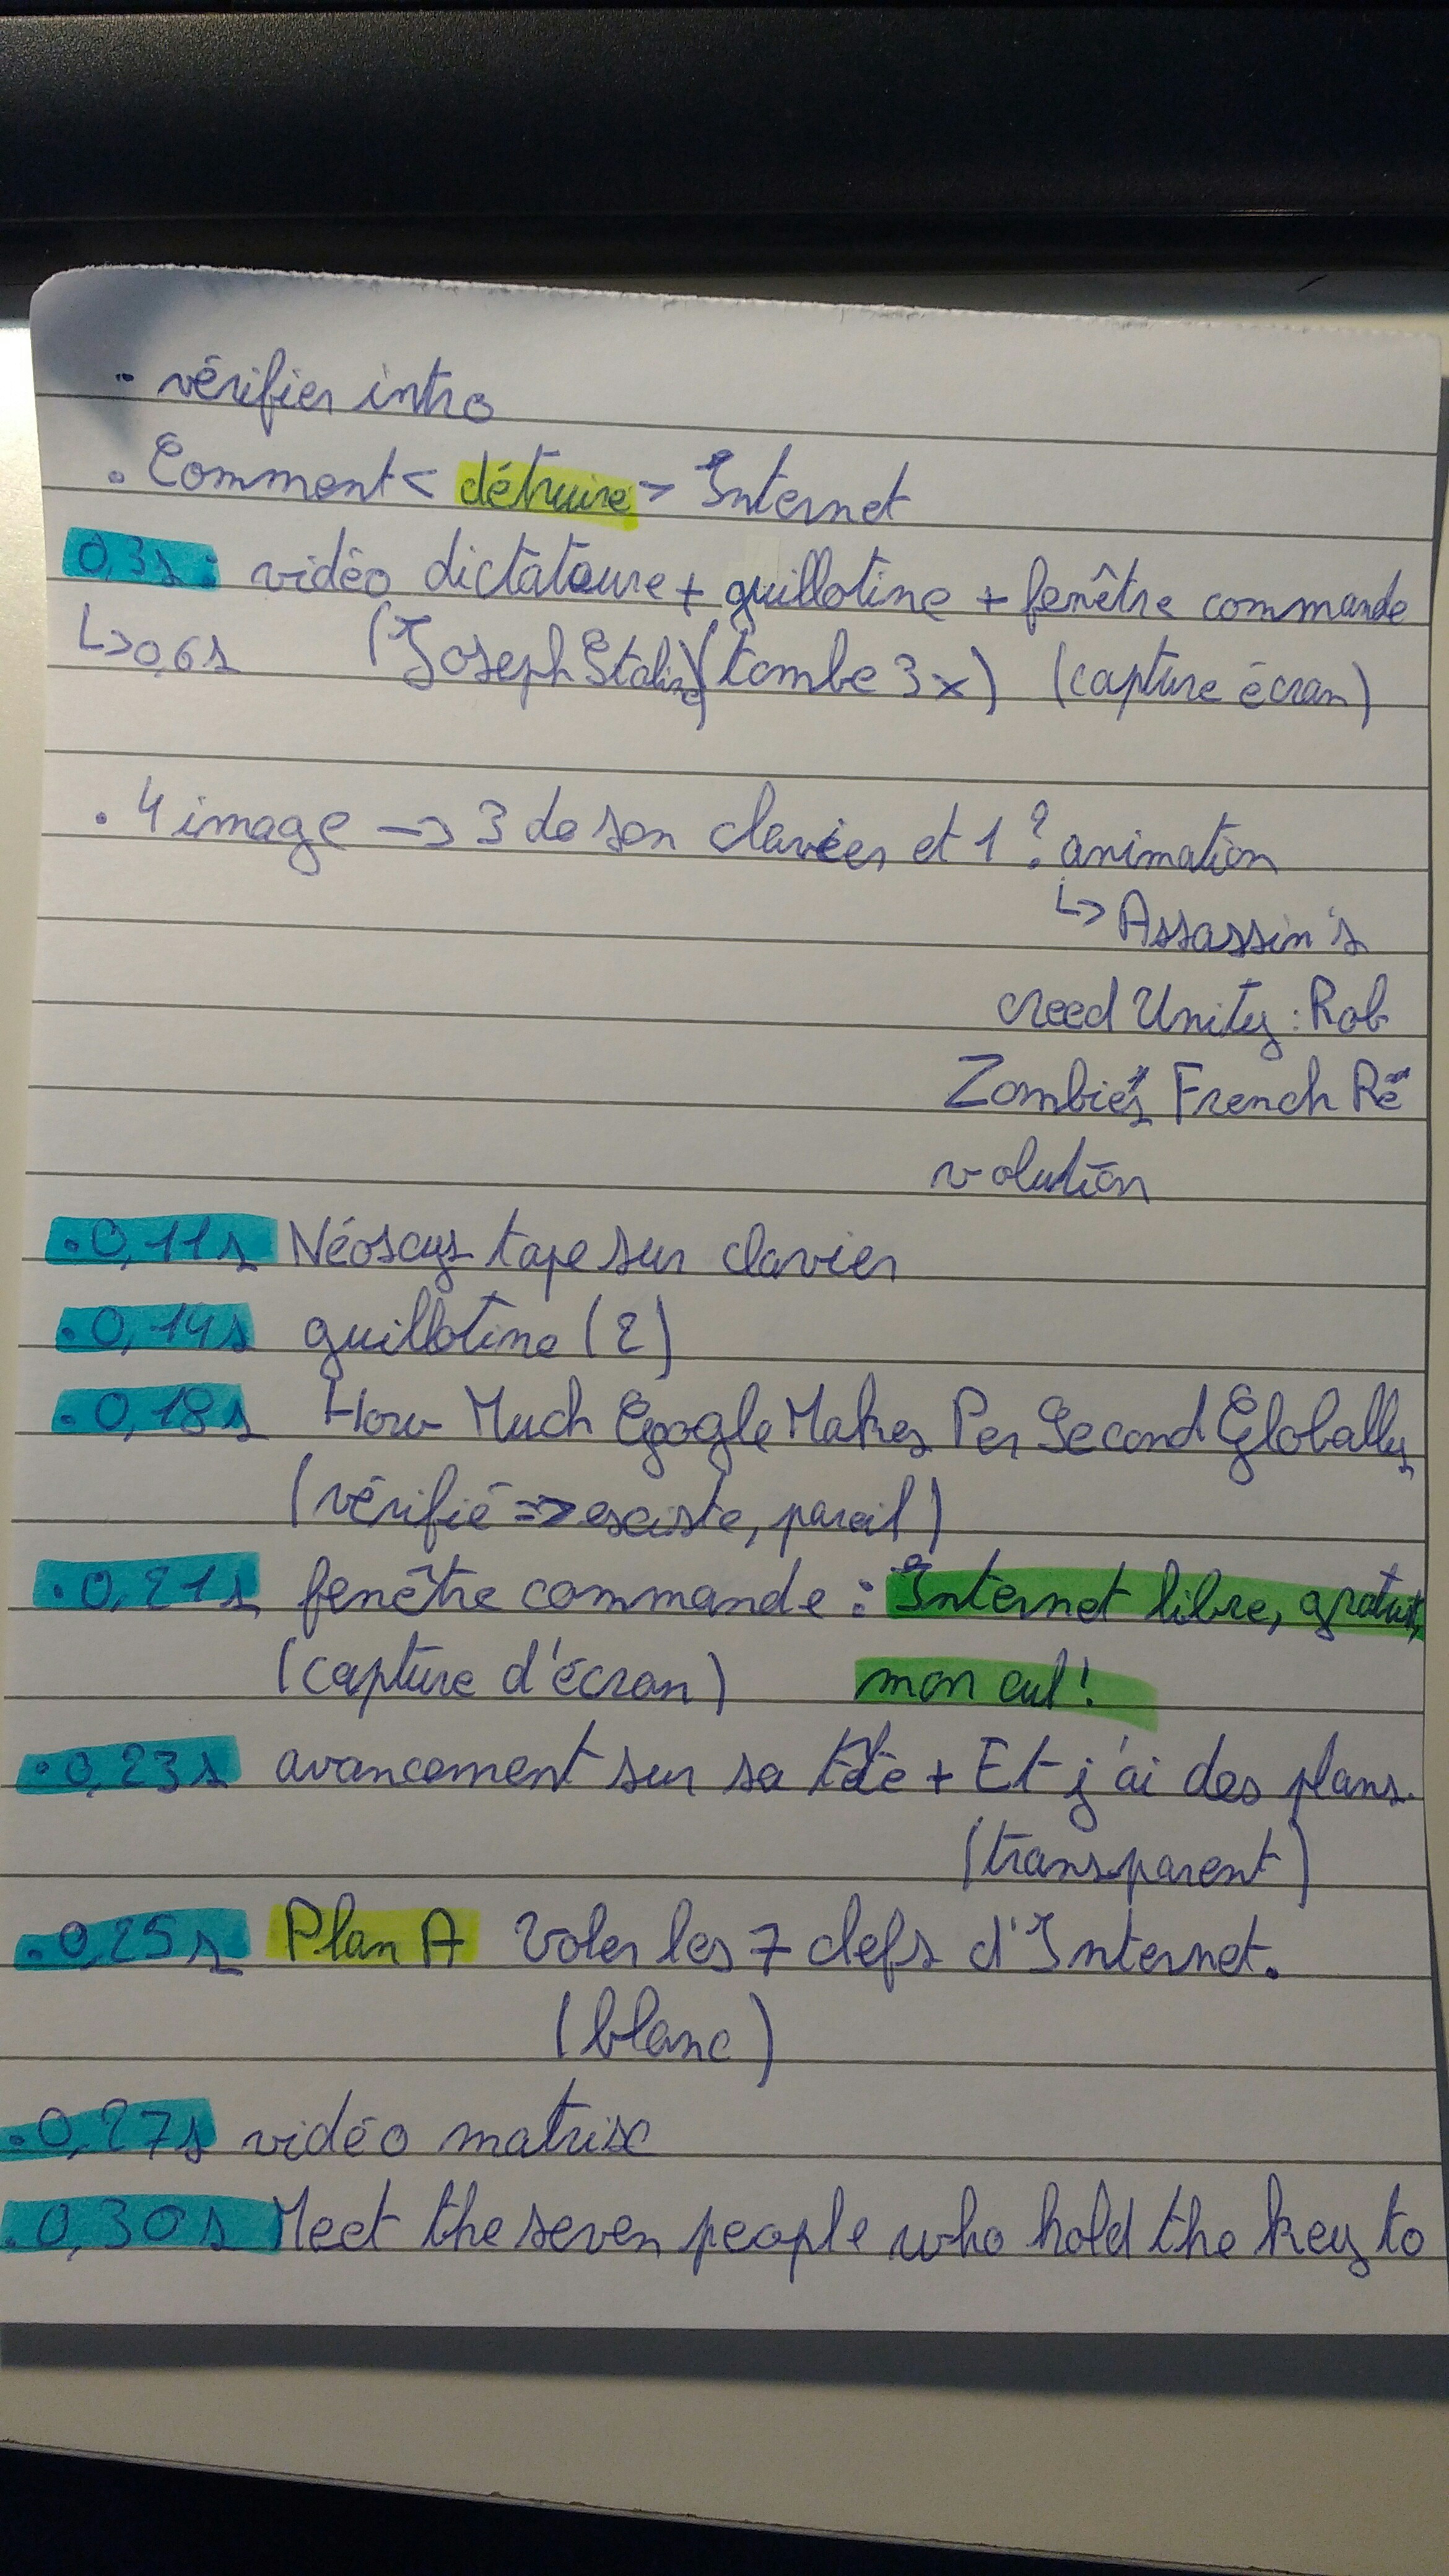 . vérifier intro
. Comment < détruire > Internet
0,3s : vidéo dictateure + guillotine + fenêtre commande
↳ 0,6s (Joseph Staline) (tombe 3x) (capture écran)
. 4 image → 3 de son clavier et 1 ? animation
↳ Assassin's
creed Unity : Rob
Zombie's French Ré
volution
. 0,11s Néoscys tape sur clavier
. 0,14s guillotine (2)
. 0,18s How Much Google Makes Per Second Globally
(vérifié => existe, pareil)
. 0,21s fenêtre commande : Internet libre, gratuit,
(capture d'écran) mon cul !
. 0,23s avancement sur sa tête + Et j'ai des plans.
(transparent)
. 0,25s Plan A Voler les 7 clefs d'Internet.
(blanc)
. 0,27s vidéo matrix
. 0,30s Meet the seven people who hold the key to